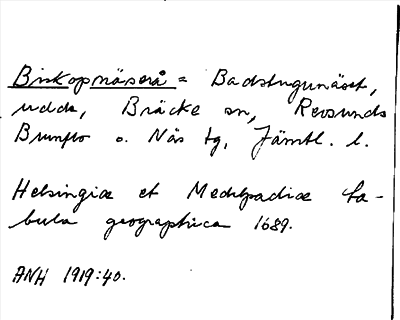 Biskopnäserå = Badstugunäset,
udde, Bräcke sn, Revsunds
Brunflo o. Näs tg, Jämtl. l.
Helsingiæ et Medelpadiæ ta-
bula geographica 1689.
ANH 1919:40.